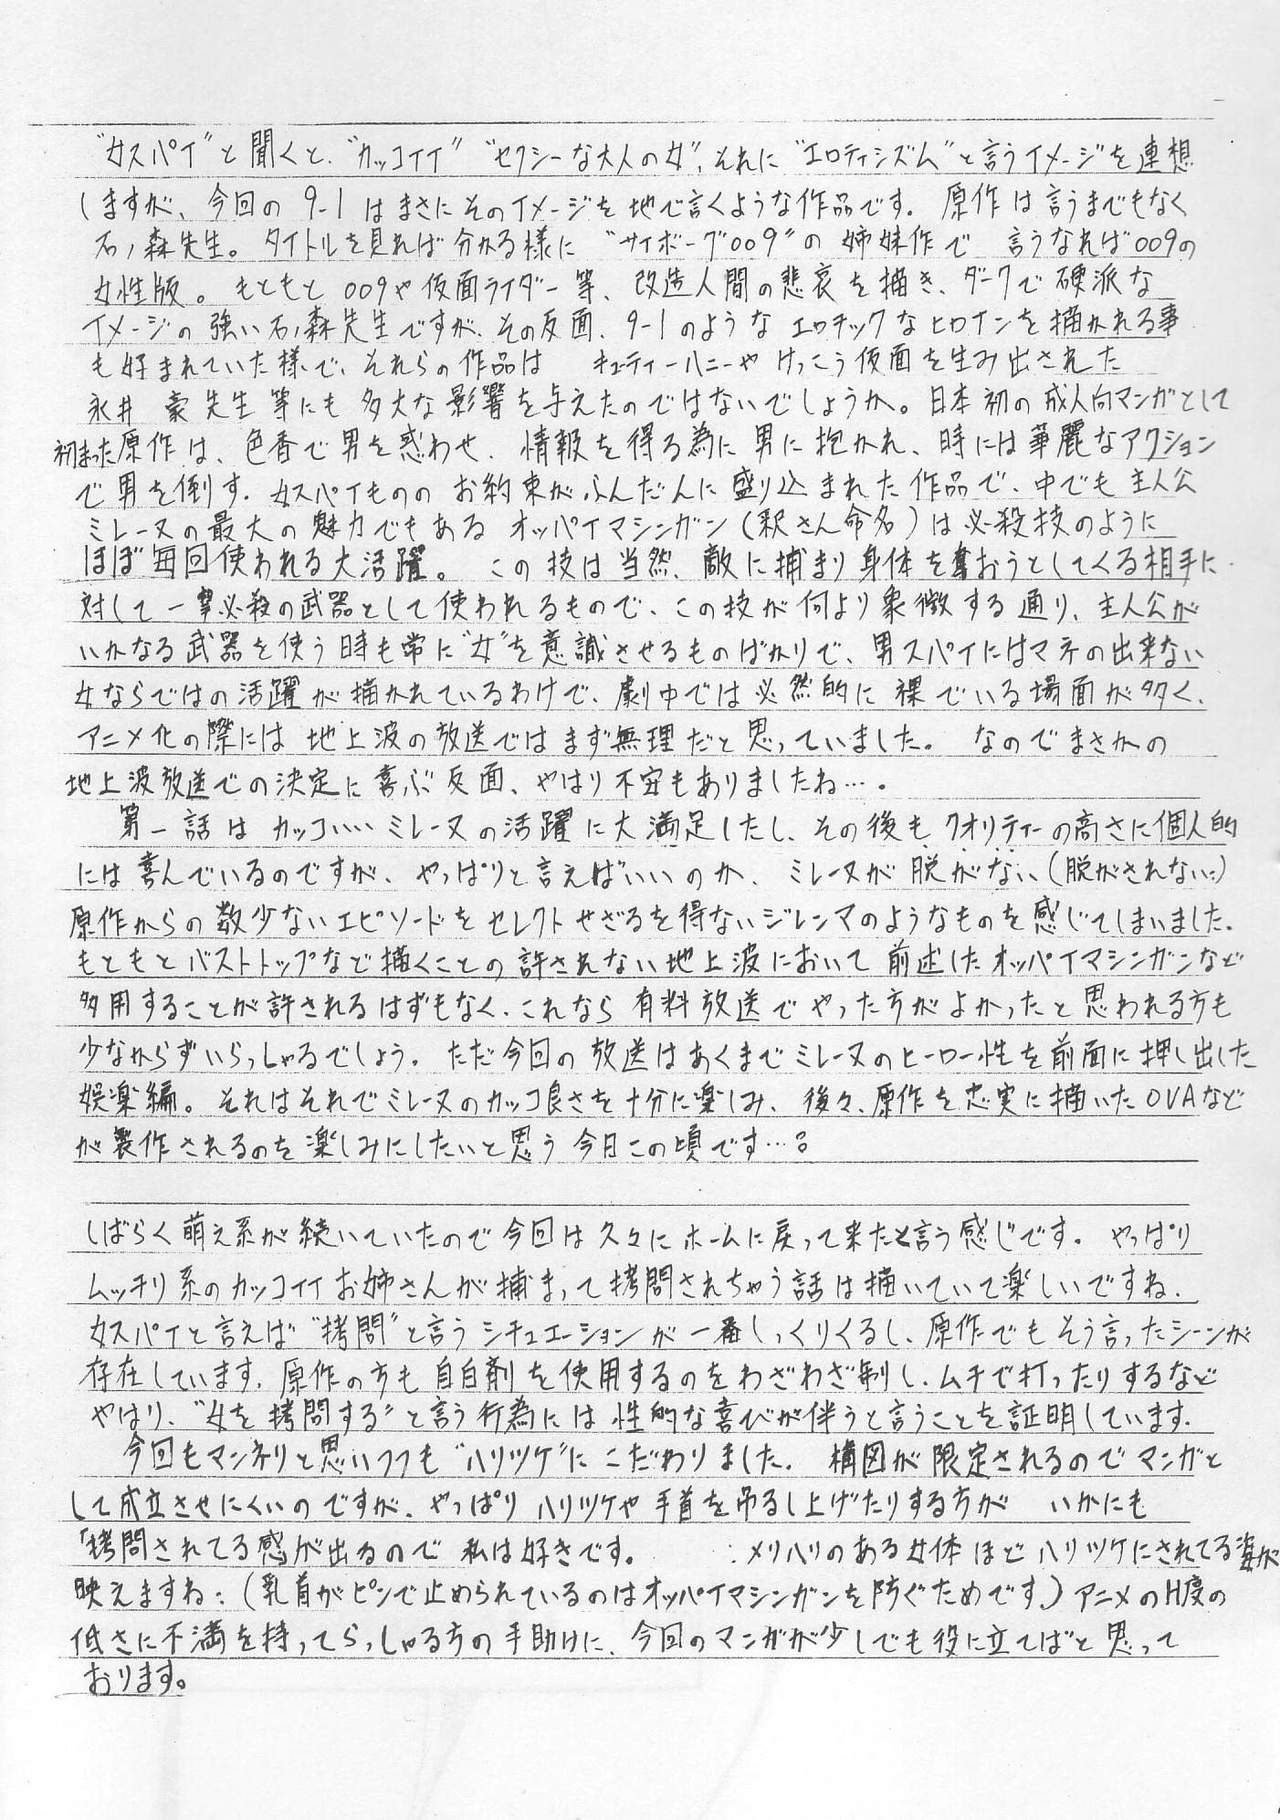 “女スパイ”と聞くと、“カッコイイ”“セクシーな大人の女”、それに“エロティシズム”と言うイメージを連想
しますが、今回の 9-1 はまさにそのイメージを地で言くような作品です。原作は言うまでもなく
石ノ森先生。タイトルを見れば分かる様に“サイボーグ009”の姉妹作で 言うなれば009の
女性版。もともと 009や仮面ライダー等、改造人間の悲哀を描き、ダークで硬派な
イメージの強い石ノ森先生ですが、その反面、9-1のようなエロチックなヒロインを描かれる事
も好まれていた様で、それらの作品は キューティーハニーやけっこう仮面を生み出された
永井 豪先生等にも多大な影響を与えたのではないでしょうか。日本初の成人向マンガとして
初まった原作は、色香で男を惑わせ、情報を得る為に男に抱かれ、時には華麗なアクション
で男を倒す、女スパイもののお約束がふんだんに盛り込まれた作品で、中でも主人公
ミレーヌの最大の魅力でもあるオッパイマシンガン(釈さん命名)は必殺技のように
ほぼ毎回使われる大活躍。この技は当然、敵に捕まり身体を奪おうとしてくる相手に
対して一撃必殺の武器として使われるもので、この技が何より象徴する通り、主人公が
いかなる武器を使う時も常に“女”を意識させるものばかりで、男スパイにはマネの出来ない
女ならではの活躍が描かれているわけで、劇中では必然的に裸でいる場面が多く、
アニメ化の際には地上波の放送ではまず無理だと思っていました。なのでまさかの
地上波放送での決定に喜ぶ反面、やはり不安もありましたね…。
第一話はカッコいいミレーヌの活躍に大満足したし、その後もクオリティーの高さに個人的
には喜んでいるのですが、やっぱりと言えばいいのか、ミレーヌが脱がない(脱がされない)
原作からの数少ないエピソードをセレクトせざるを得ないジレンマのようなものを感じてしまいました。
もともとバストトップなど描くことの許されない地上波において前述したオッパイマシンガンなど
多用することが許されるはずもなく、これなら有料放送でやった方がよかったと思われる方も
少なからずいらっしゃるでしょう。ただ今回の放送はあくまでミレーヌのヒーロー性を前面に押し出した
娯楽編。それはそれでミレーヌのカッコ良さを十分に楽しみ、後々、原作を忠実に描いたOVAなど
が製作されるのを楽しみにしたいと思う今日この頃です…。
しばらく萌え系が続いていたので今回は久々にホームに戻って来たと言う感じです。やっぱり
ムッチリ系のカッコイイお姉さんが捕まって拷問されちゃう話は描いていて楽しいですね。
女スパイと言えば“拷問”と言うシチュエーションが一番しっくりくるし、原作でもそう言ったシーンが
存在しています。原作の方も自白剤を使用するのをわざわざ制し、ムチで打ったりするなど
やはり、“女を拷問する”と言う行為には性的な喜びが伴うと言うことを証明しています。
今回もマンネリと思いつつも“ハリツケ”にこだわりました。構図が限定されるのでマンガと
して成立させにくいのですが、やっぱりハリツケや手首を吊るし上げたりする方が いかにも
「拷問されてる感が出るので私は好きです。 メリハリのある女体ほどハリツケにされてる姿が
映えますね:(乳首がピンで止められているのはオッパイマシンガンを防ぐためです。)アニメのH度の
低さに不満を持ってらっしゃる方の手助けに、今回のマンガが少しでも役に立てばと思って
おります。